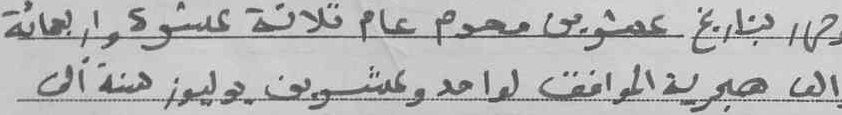 وحرر بتاريخ عشرين محرم عام ثلاثة عشرة واربعمائة
والف هجرية الموافق لواحد وعشرين يوليوز سنة ألف